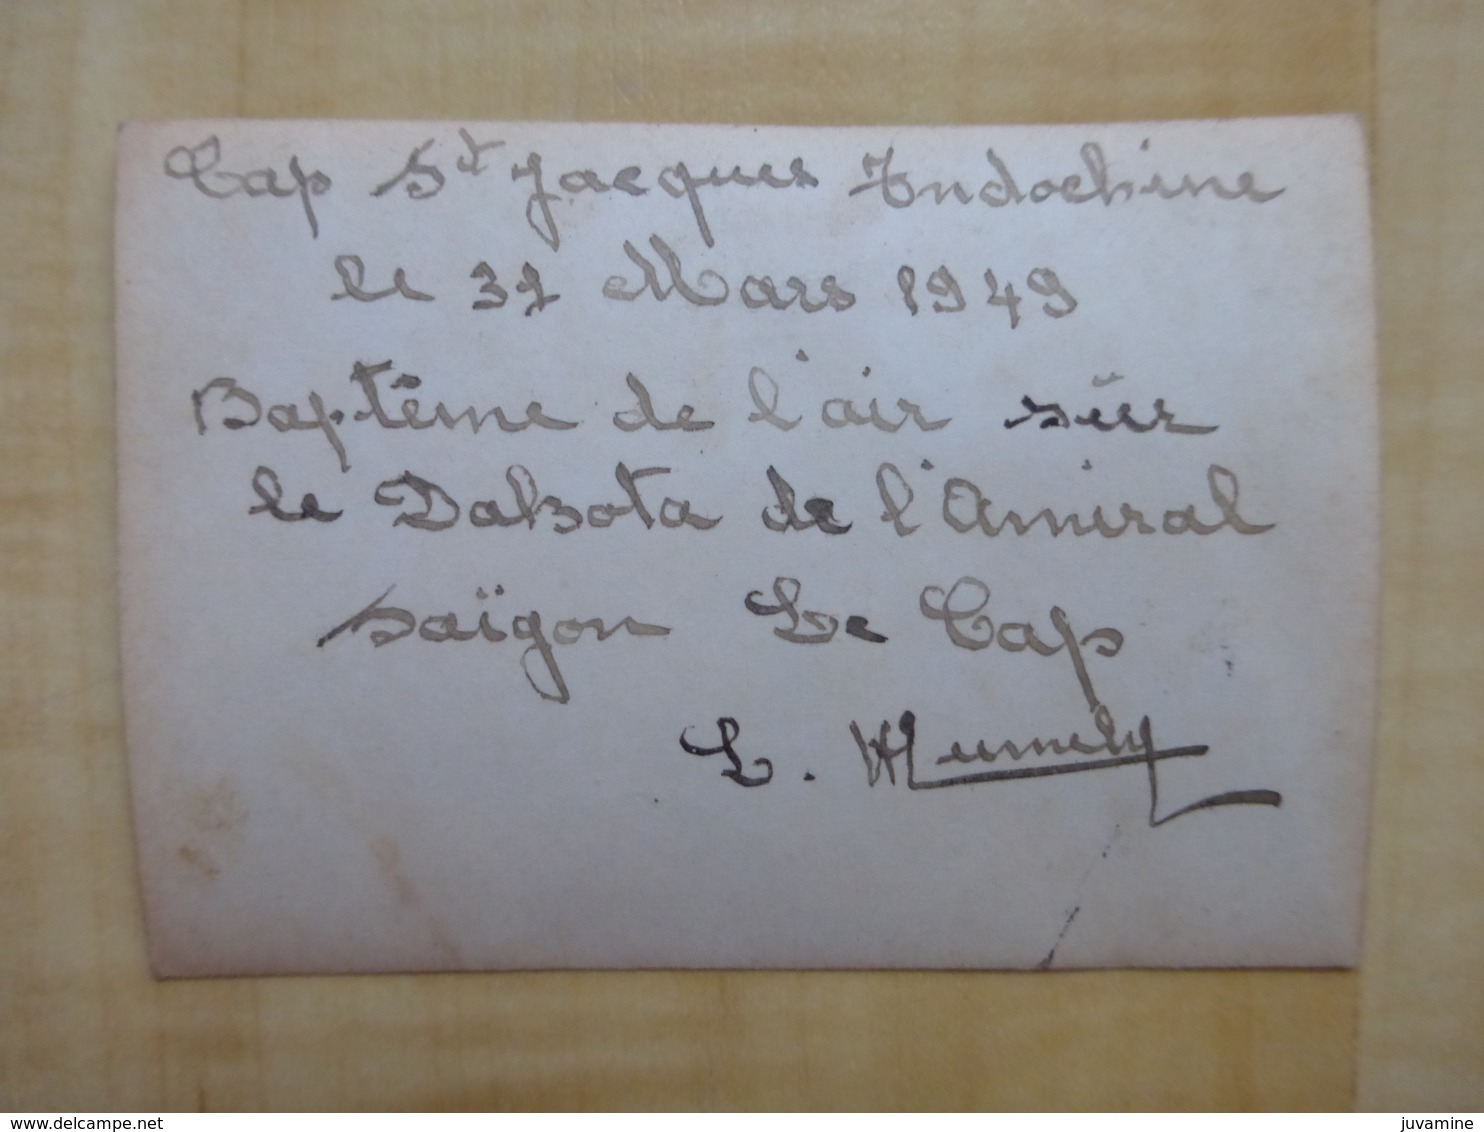 Cap St Jacques Indochine
le 31 Mars 1949
Baptême de l'air sur
le Dakota de l'Amiral
Saïgon Le Cap
L.
delcampe.net
juvamine